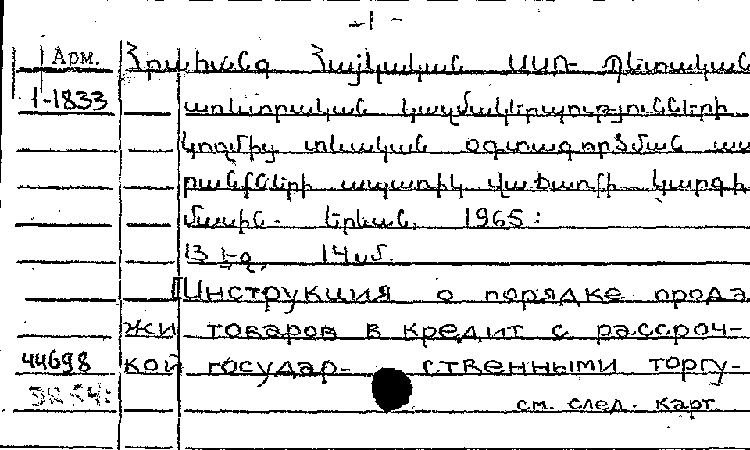 -1-
Арм. Հրահանգ Հայկական ՍՍՌ Պետական
1-1833 առևտրական կազմակերպությունների
կողմից տևական օգտագործման ապ
րանքների ապառիկ վաճառքի կարգի
մասին. Երևան, 1965:
13 էջ, 14 սմ.
[Инструкция о порядке прода
жи товаров в кредит с рассроч-
44698 кой государ- ственными торгу-
см. след. карт